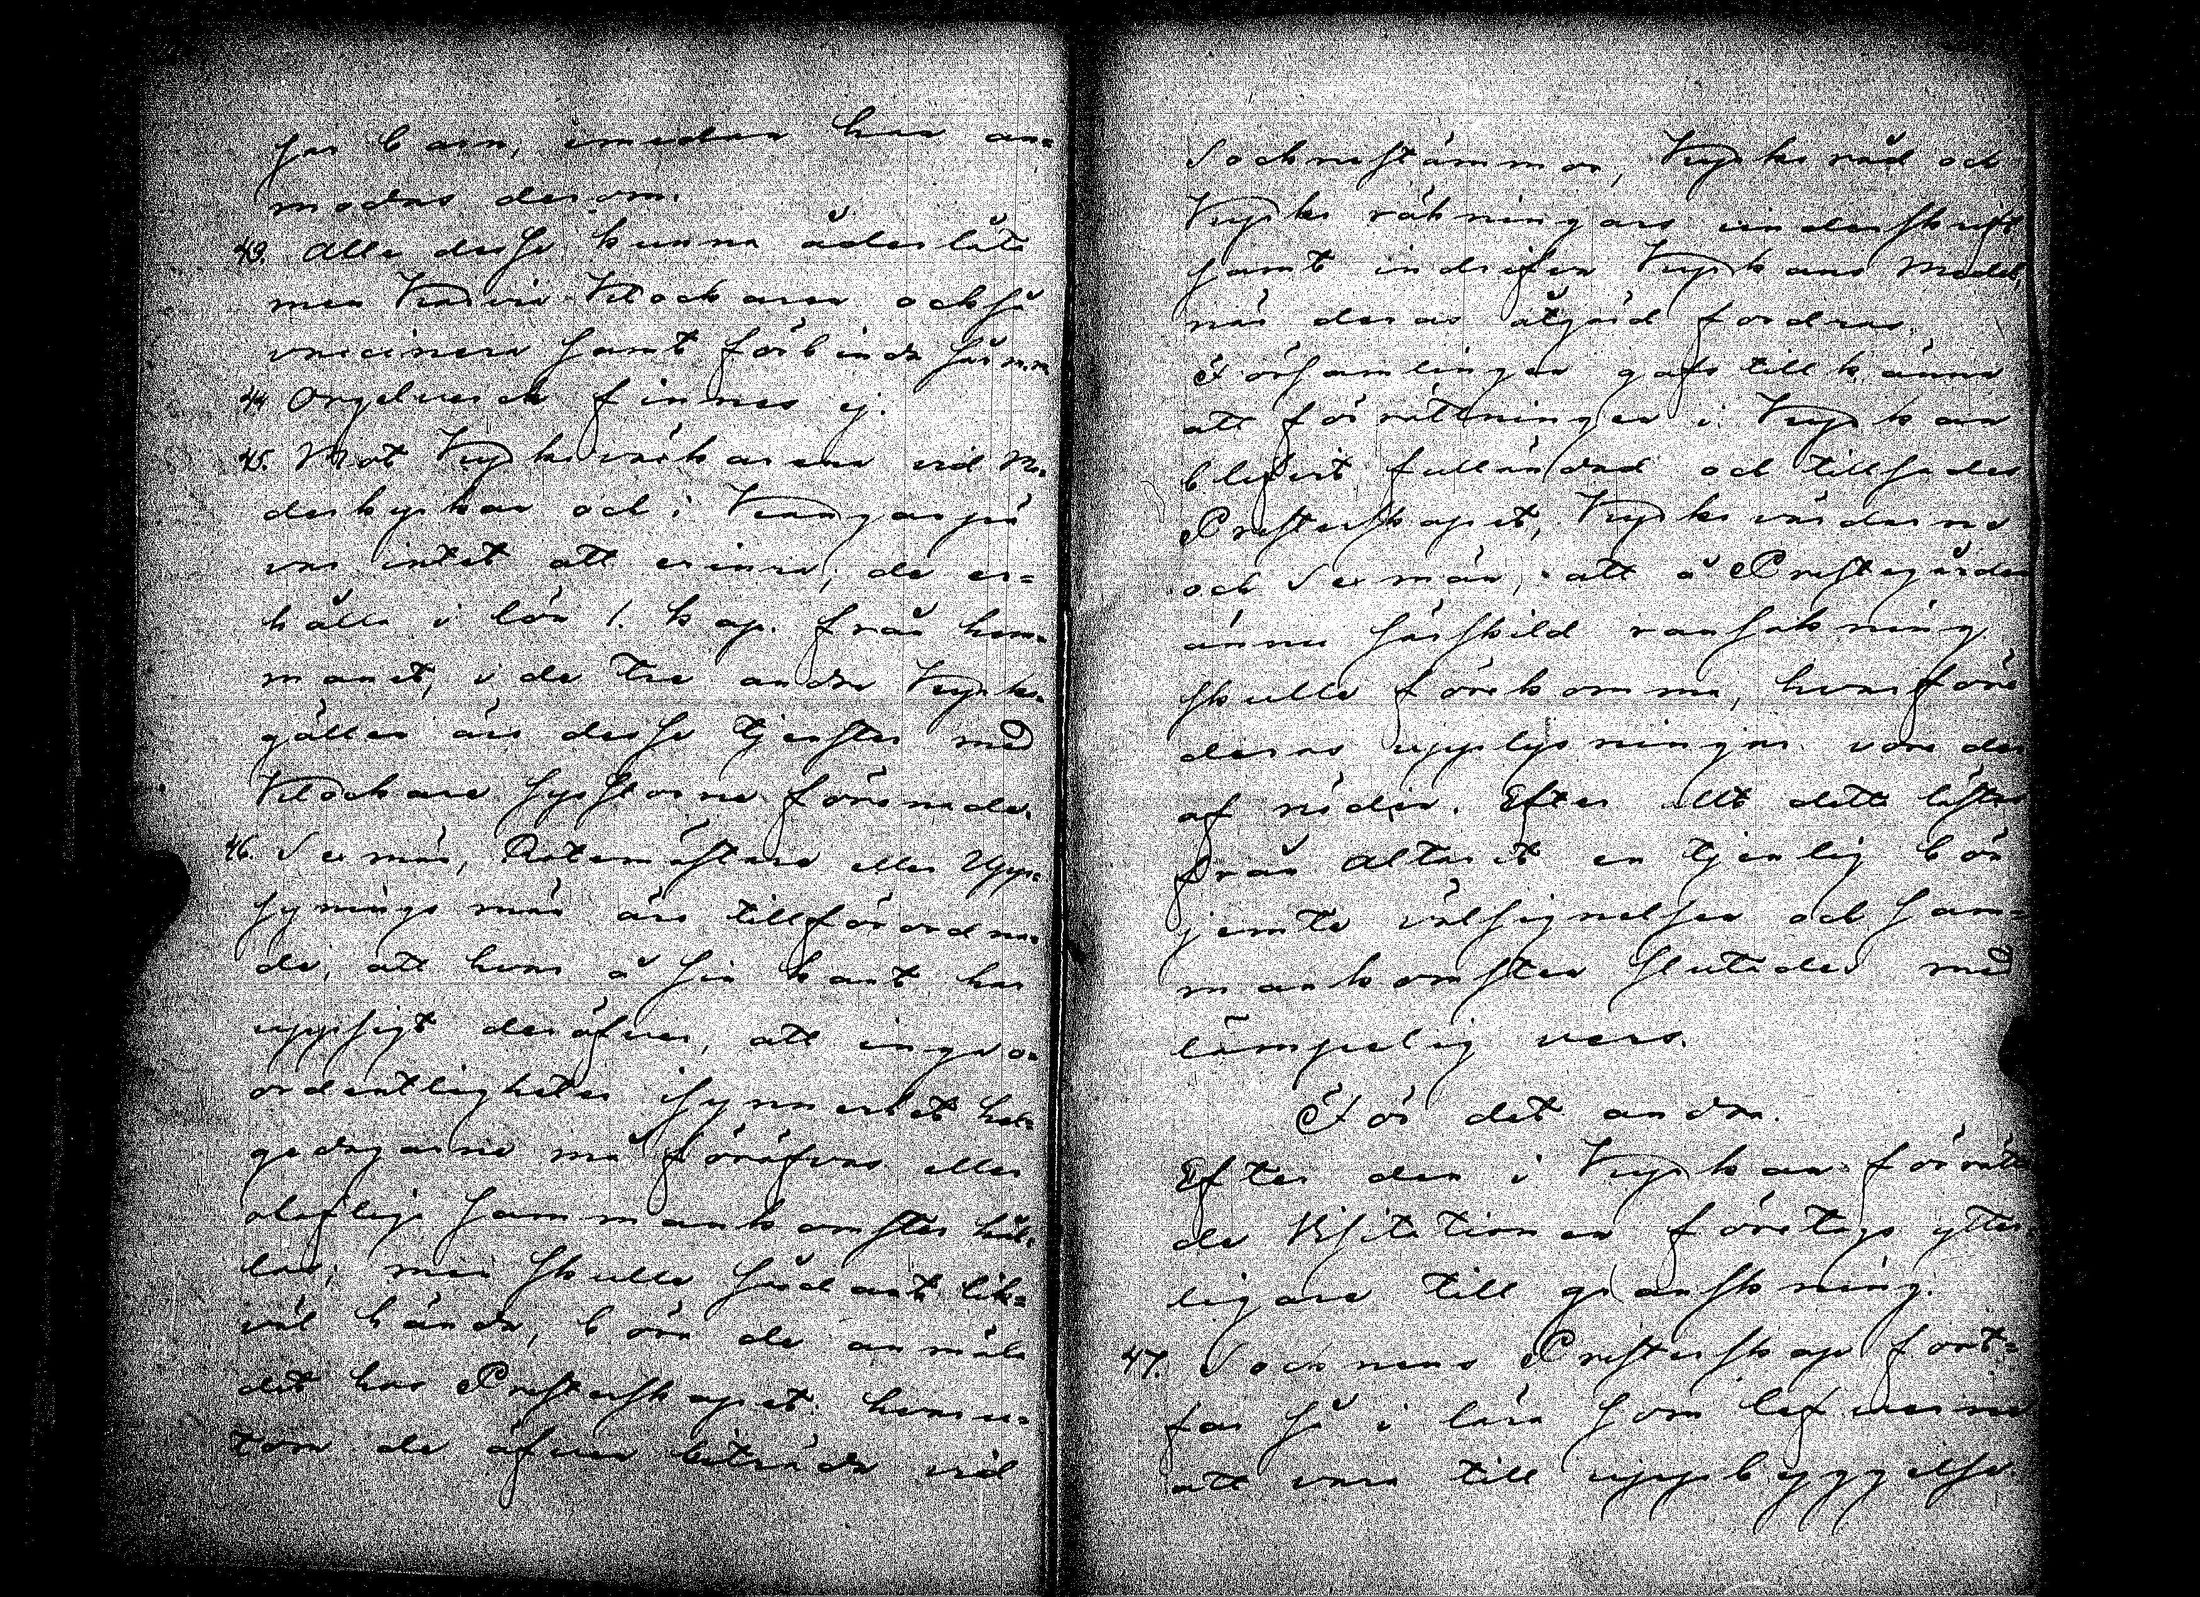 för barn, emedan han an-
modas derom.
43. Alla desse kunna åderlåta
men Klockaren också
vaccinera samt förbinda sår m.m
44 Orgelverk finnes ej.
45. Mot Kyrkoväktarena vid Mo-
derkyrkan och i
var intet att erinra; de er-
hålla i lön 1. kap. från hem-
manet, i de tre andra Kyrko-
gällen äro desse tjenster med
Klockare sysslorne förenade.
46. Sexmän, Rotemästare eller Upp-
synings män äro tillförordna-
de, att hvar å sin kant ha
uppsigt deröfver, att inga o-
ordentligheter isynnerhet hel-
gedagarne må föröfvas eller
olofliga sammankomster hål-
las; men skulle sådant lik-
väl hända, böra de anmäla
det hos Presterskapet: hvaru-
tom de äfven biträda vid
Socknestämmor, Kyrko råd och
Kyrko räkningars underskrift
samt indrifva Kyrkans Medel,
när deras åtgärd fordras.
Församlingen gafs tillkänna
att förrättningen i Kyrkan
blifvit fulländad och tillsades
Presterskapet, Kyrkovärdarne
och Sexmän, att å Prestegården
ännu särskild ransakning
skulle förekomma, hvarföre
deras upplysningar vore der
af nöden. Efter allt detta lästes
från Altaret en tjenlig bön
jemte välsignelsen och sam-
mankomsten slutades med
lämpelig vers.
För det andra.
Efter den i Kyrkan förrätta
de Visitationen företogs ytter
ligare till granskning.
47. Socknens Presterskap fort-
far så i lära som lefverne
att vara till uppbyggelse